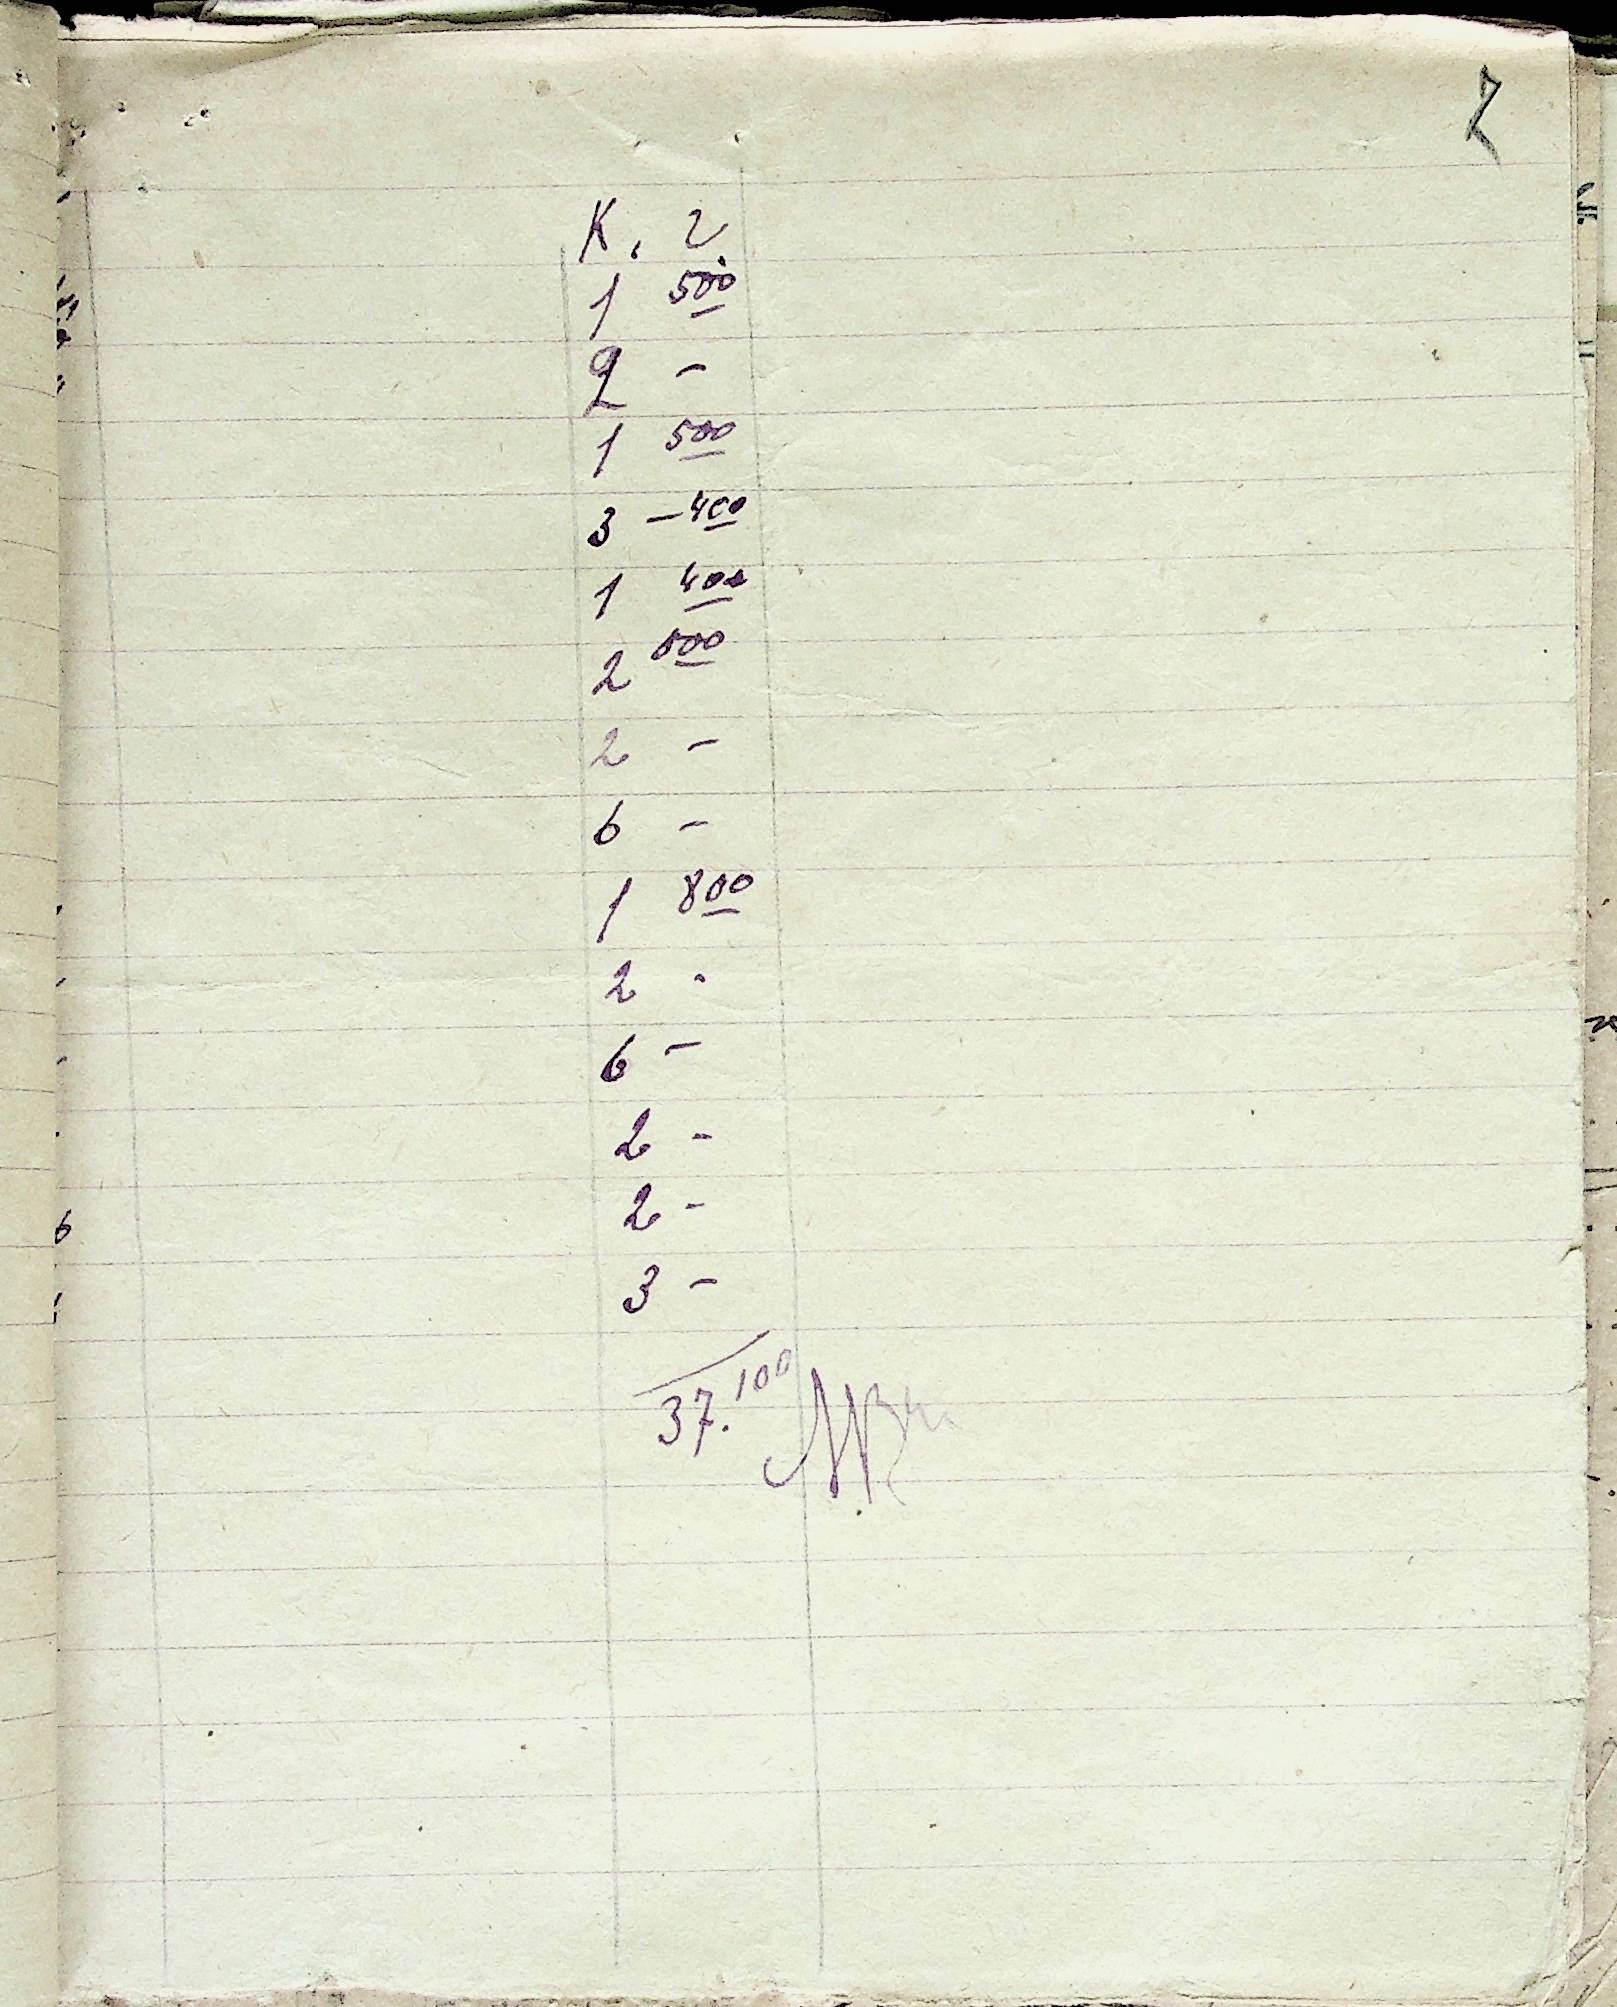 2
К. г
1 500
2 -
1 500
3 - 400
1 400
2 500
2 -
6 -
1 800
2 -
6 -
2 -
2 -
3 -
37.100